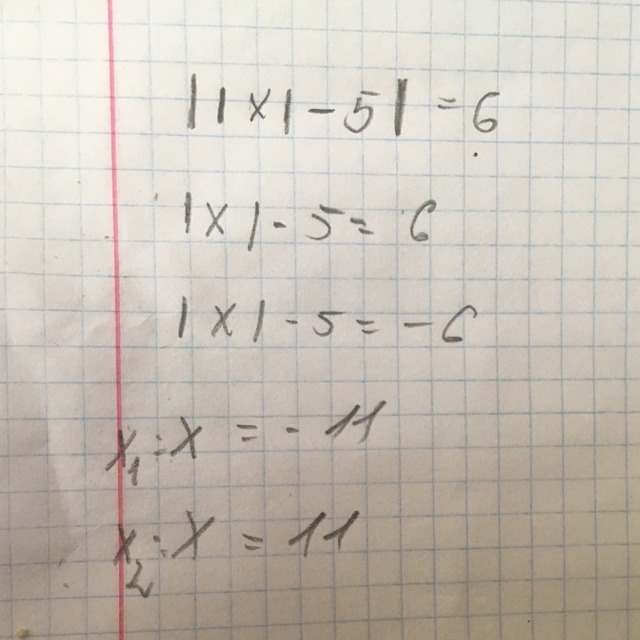 ||x|-5|=6
|x|-5=6
|x|-5=-6
x₁:x=-11
x₂:x=11